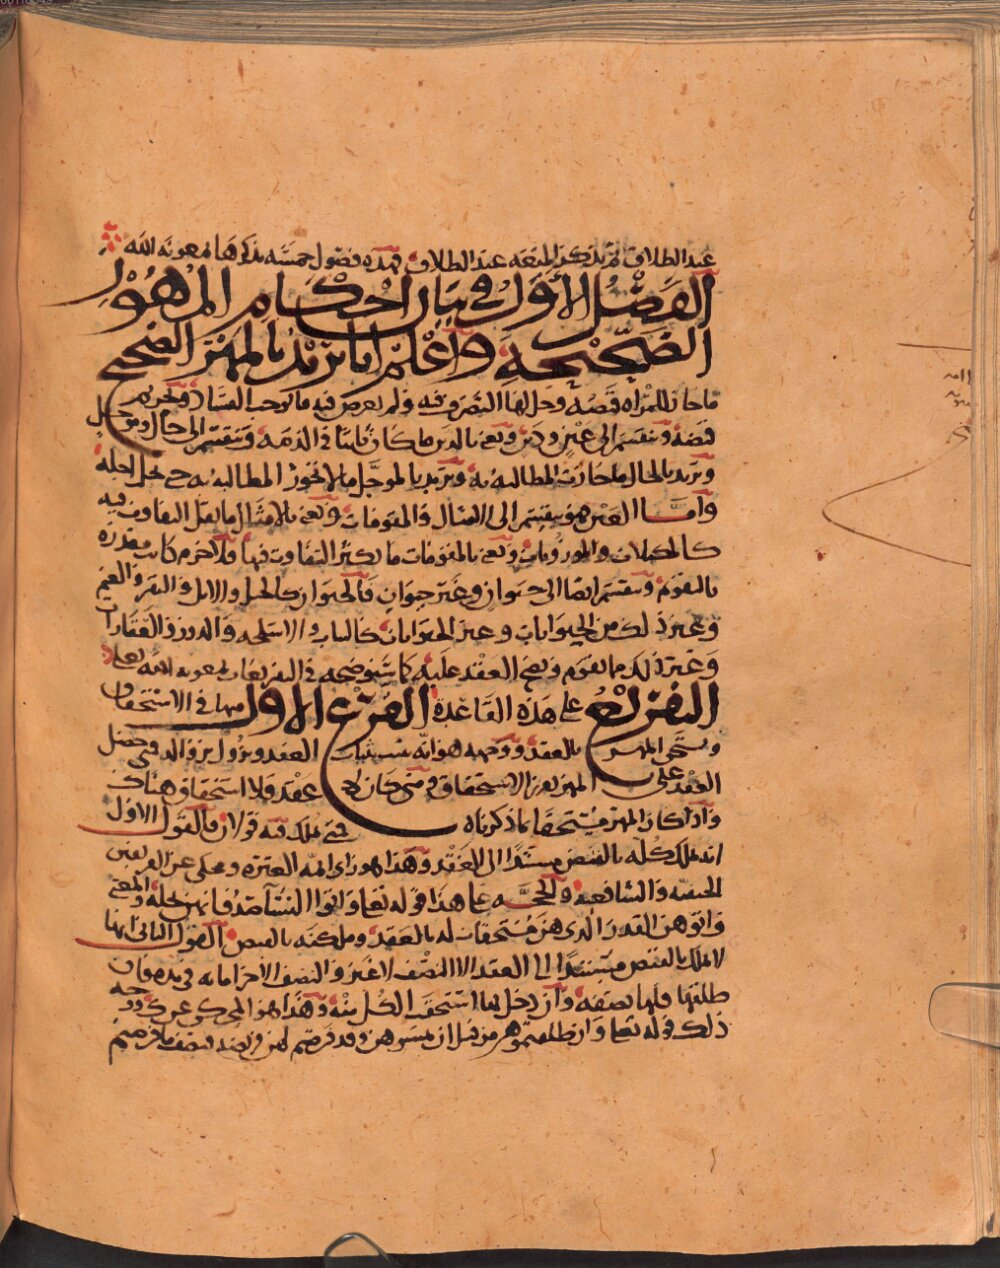 عند الطلاق ثم نذكر المتعة عند الطلاق فهذه فصول خمسة نذكرها بمعونة الله
الفصل الأول في بيان أحكام المهور
الصحيحة واعلم أنا نريد بالمهر الصحيح
ما جاز للمرأة قبضه وحل لها التصرف فيه ولم يعرض فيه ما يوجب الفساد وتحريم
قبضه وينقسم الى عين ودين ونعني بالدين ما كان ثابتا في الذمة وينقسم الى حال ومؤجل
ونريد بالحال ما جازت المطالبة به ونريد بالمؤجل ما لا تجوز المطالبة به حتى يحل اجله
وأما العين فهو ينقسم الى الامثال والمقومات ونعني بالامثال ما يقل التفاوت فيه
كالمكيلات والموزونات ونعني بالمقومات ما يكثر التفاوت فيها فلا جرم كانت مقدرة
بالتقويم وينقسم ايضا الى حيوان وغير حيوان فالحيوان كالخيل والابل والبقر والغنم
وغير ذلك من الحيوانات وغير الحيوانات كالثياب والاسلحة والدور والعقارات
وغير ذلك مما يقوم ويصح العقد عليه كما سنوضحه في التفريعات بمعونة الله تعالى
التفريع على هذه القاعدة الفرع الاول منها في الاستحقاق
ويستحق المهر بالعقد ووجهه هو انه يثبت بثبات العقد ويزول بزواله فمتى حصل
العقد على المهر بعد الاستحقاق ومتى كان لا عقد فلا استحقاق هناك
واذا كان المهر مستحقا بما ذكرناه فمتى يملك فيه قولان فالقول الاول
انه يملك كله بالقبض مستندا الى العقد وهذا هو راي ائمة العترة ومحكي عن الفريقين
الحنفية والشافعية والحجة على هذا قوله تعالى وآتوا النساء صدقاتهن نحلة والمعنى
وآتوهن القدر الذي هن مستحقات له بالعقد وملكنه بالقبض القول الثاني انها
لا تملك بالقبض مستندا الى العقد الا النصف لا غير والنصف الآخر امانة في يدها فان
طلقها فلها نصفه وان دخل بها استحقت الكل منه وهذا هو المحكي عن ووجه
ذلك قوله تعالى وان طلقتموهن من قبل ان تمسوهن وقد فرضتم لهن فريضة فنصف ما فرضتم